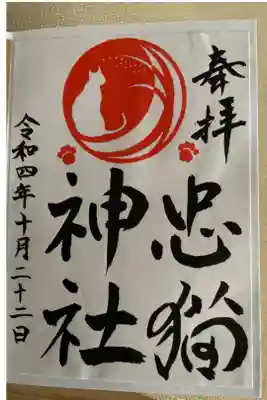 奉拝
忠猫
神社
令和四年十月二十二日